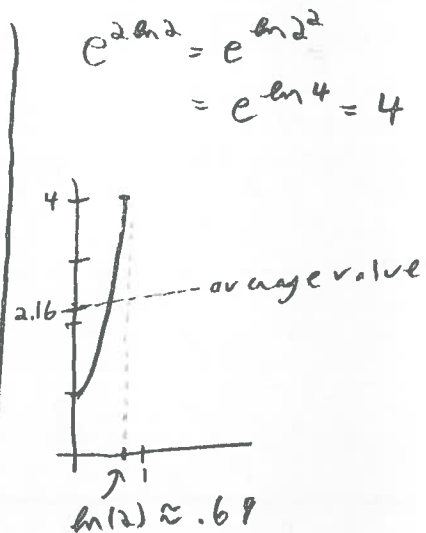 e^{2 ln 2} = e^{ln 2^2}
= e^{ln 4} = 4
4
average value
2.16
1
ln(2) ≈ .69